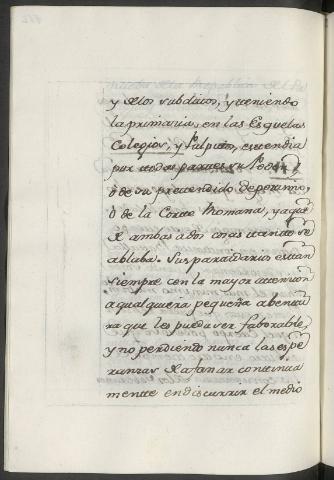 y de los subditos, y teniendo
la primaria, en las Esquelas
Colegios, y Pulpitos, estendia
por todas partes su Poder
ó de su pretendido deporanio,
ó de la Corte Romana, ya que
de ambas a dos cosas tratando se
ablaba. Sus partidarios estan
siempre con la mayor attension
a qualquiera pequeña abentu
ra que les pueda ser faborable,
y no perdiendo nunca las espe
ranzas de afanar continua
mente en discurrir el medio